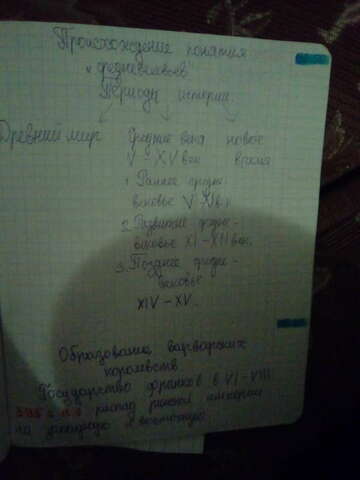 Происхождение понятия
"средневековье"
Периоды истории
Древний мир Средние века новое
V - XV век время
1. Раннее средне-
вековье V-XI в.
2. Развитие средне-
вековье XI - XIII век.
3. Позднее средне-
вековье
XIV - XV.
Образование варварских
королевств
Государство франков в VI - VIII
395 г. н.э распад римской империи
на западную и восточную